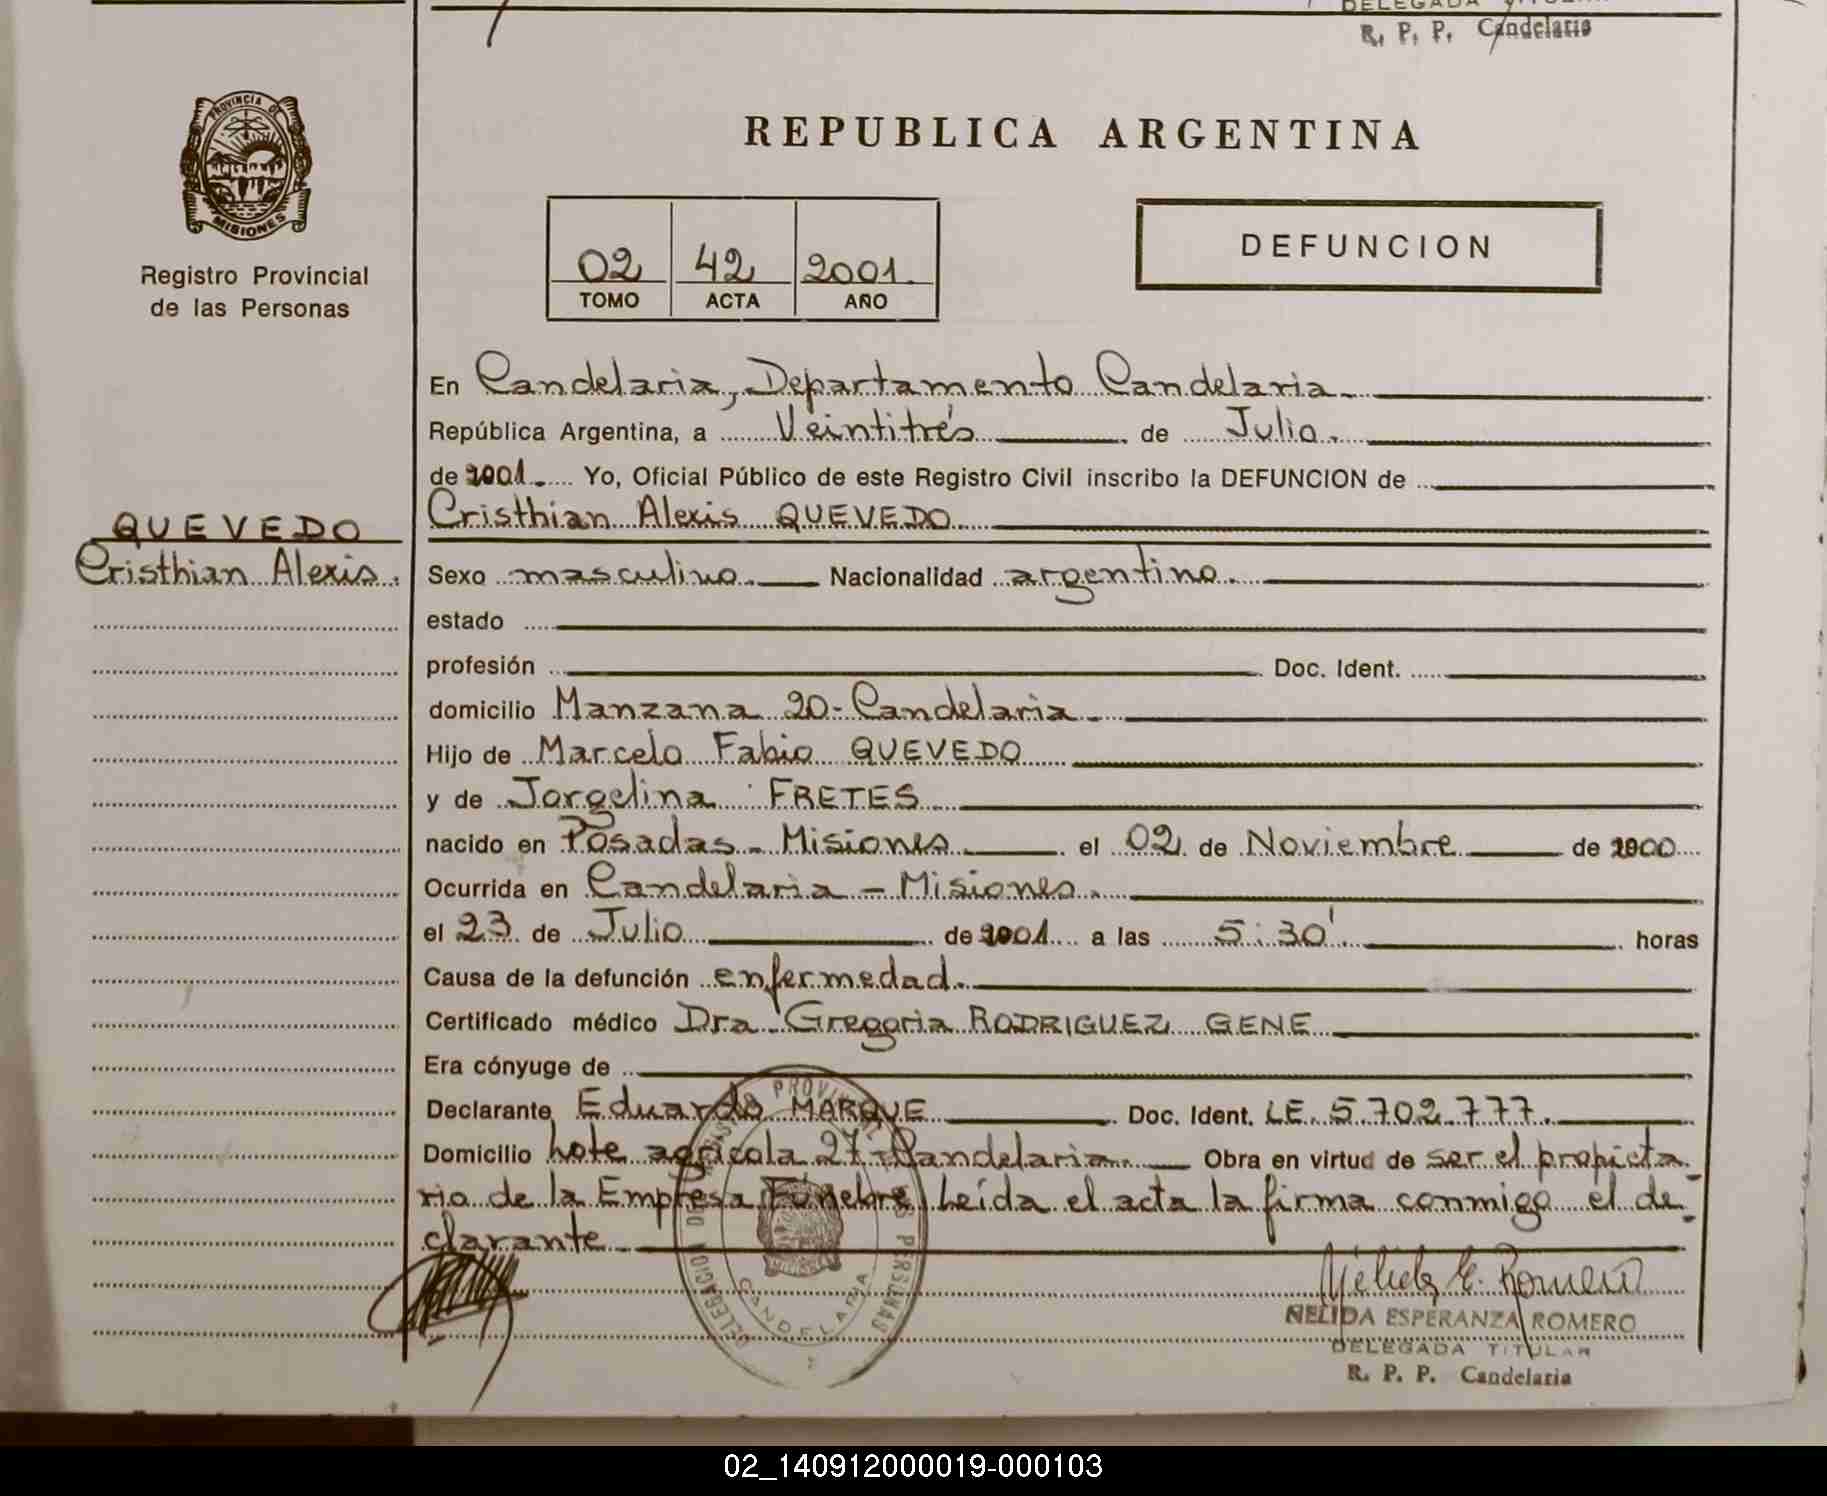 DELEGADA TITULAR
R. P. P. Candelaria
PROVINCIA DE
MISIONES
Registro Provincial
de las Personas
REPUBLICA ARGENTINA
02 42 2001.
TOMO ACTA AÑO
DEFUNCION
En Candelaria, Departamento Candelaria.
República Argentina, a Veintitrés de Julio.
de 2001. Yo, Oficial Público de este Registro Civil inscribo la DEFUNCION de
QUEVEDO
Cristhian Alexis.
Cristhian Alexis QUEVEDO
Sexo masculino. Nacionalidad argentino.
estado
profesión Doc. Ident.
domicilio Manzana 20- Candelaria
Hijo de Marcelo Fabio QUEVEDO
y de Jorgelina FRETES
nacido en Posadas - Misiones el 02 de Noviembre de 2000
Ocurrida en Candelaria - Misiones.
el 23 de Julio de 2001 a las 5:30' horas
Causa de la defunción enfermedad.
Certificado médico Dra Gregoria RODRIGUEZ GENE
Era cónyuge de
Declarante Eduardo MARQUE Doc. Ident. LE. 5.702.777.
Domicilio Lote agrícola 27-Candelaria. Obra en virtud de ser el propieta-
rio de la Empresa Fúnebre Leída el acta la firma conmigo el de-
clarante
CANDELARIA
Nélida E. Romero
NELIDA ESPERANZA ROMERO
DELEGADA TITULAR
R. P. P. Candelaria
02_140912000019-000103